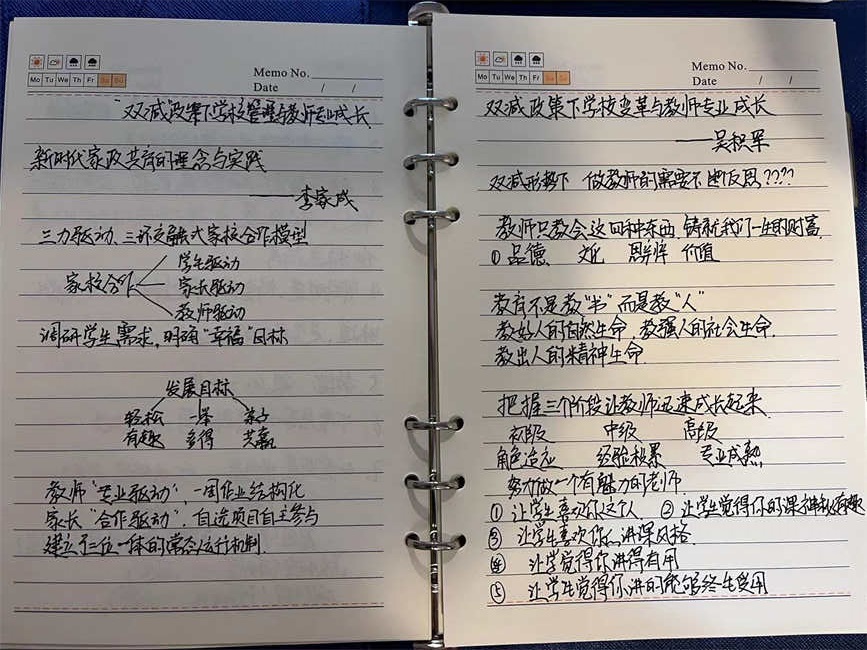 Memo No.
Mo Tu We Th Fr Sa Su
Date / /
双减政策下学校管理与教师专业成长
新时代家政共育的理念与实践
——李家成
三力驱动、三环交融式家校合作模型
家校合作
学生驱动
家长驱动
教师驱动
调研学生需求,明确“幸福”目标
发展目标
轻松 一举 亲子
有趣 多得 共赢
教师“专业驱动”,一周作业结构化
家长“合作驱动”.自选项目自主参与
建立了三位一体的常态运行机制.
Memo No.
Mo Tu We Th Fr Sa Su
Date / /
双减政策下学校变革与教师专业成长
——吴积军
双减形势下 做教师的需要不断反思????
教师只教会这四种东西,铸就我们一生的财富.
① 品德 文化 思维 价值
教育不是教“书”而是教“人”
教好人的自然生命 教强人的社会生命.
教出人的精神生命
把握三个阶段让教师迅速成长起来.
初级 中级 高级
角色适应 经验积累 专业成熟
努力做一个有魅力的老师.
① 让学生喜欢你这个人 ② 让学生觉得你的课神秘有趣
③ 让学生喜欢你讲课风格.
④ 让学觉得你讲得有用
⑤ 让学生觉得你讲的能够终生受用